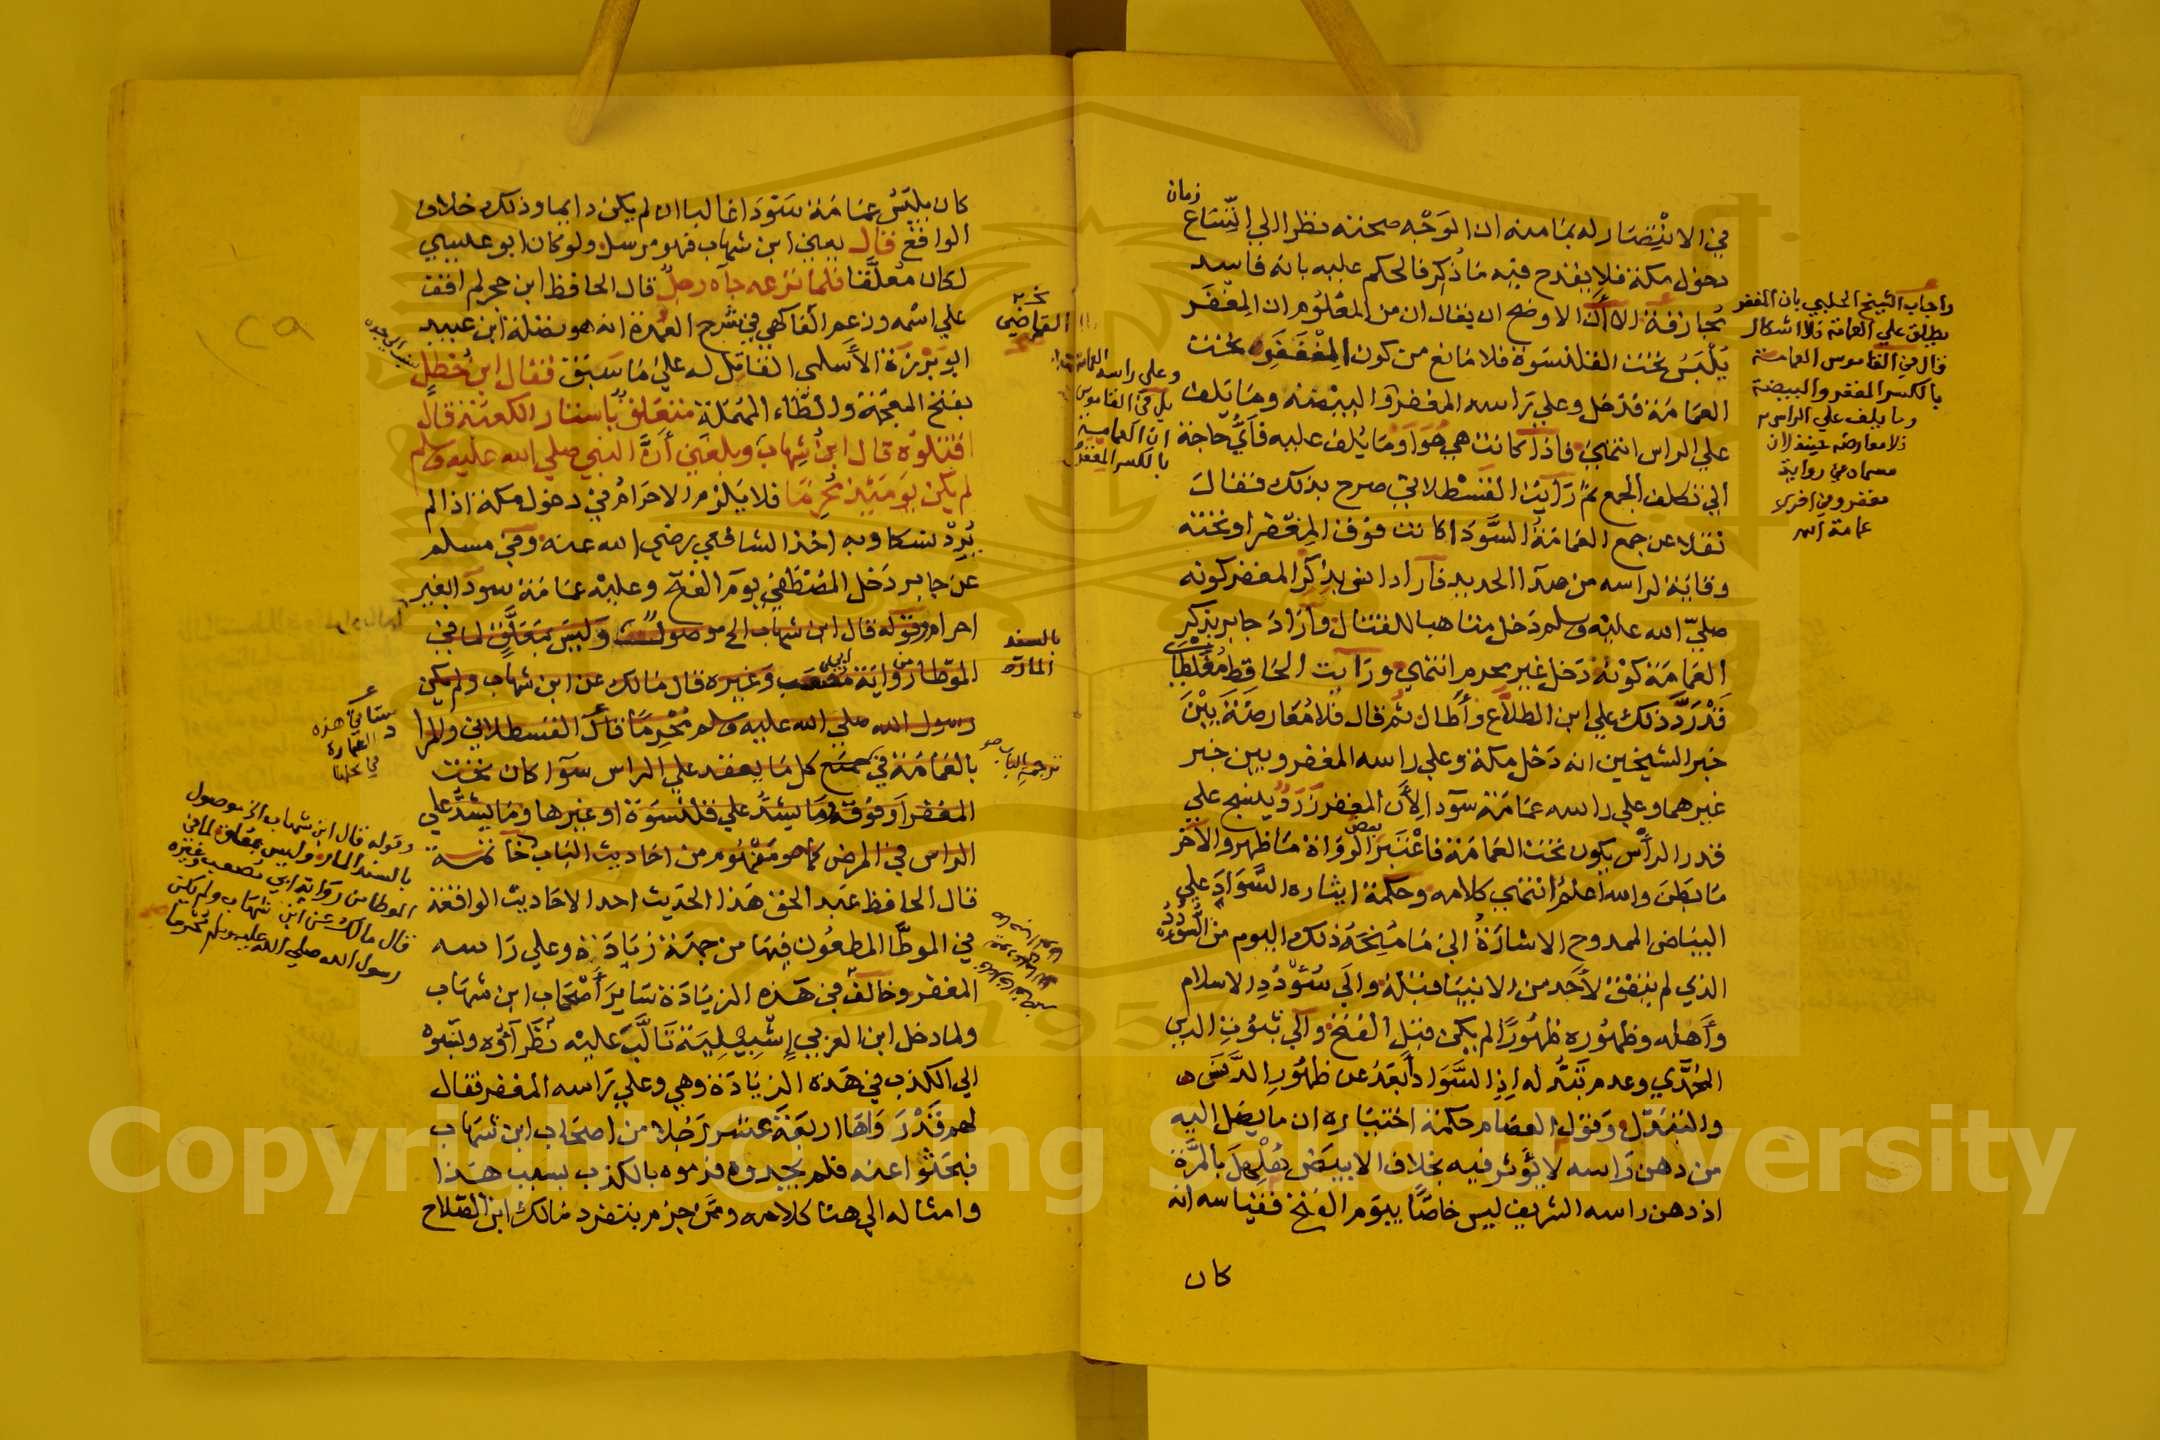 زمان
في الانتصار له بما منه ان الوجه صحته نظرا الي اتساع
دخول مكة فلا يقدح فيه ما ذكر فالحكم عليه بانه فاسد
مجازفة الا ان الاوضح ان يقال ان من المعلوم ان المغفر
يلبس تحت القلنسوة فلا مانع من كون المغفر تحت
العمامة فدخل وعلي راسه المغفر والبيضة وما يلف
علي الراس انتهي فاذا كانت هي هو او ما يلف عليه فاي حاجة
الي تكلف الجمع ثم رايت القسطلاني صرح بذلك فقال
نقلا عن جمع العمامة السودا كانت فوق المغفر او تحته
وقاية لراسه من صدا الحديد فاراد انس بذكر المغفر كونه
صلي الله عليه وسلم دخل متاهبا للقتال واراد جابر بذكر
العمامة كونه دخل غير محرم انتهي ورايت الحافظ مغلطاي
قد رد ذلك علي ابن الطلاع واطال ثم قال فلا معارضة بين
خبر الشيخين انه دخل مكة وعلي راسه المغفر وبين خبر
غيرهما وعلي راسه عمامة سودا لان المغفر زرد ينسج علي
قدر الراس يكون تحت العمامة فاعتبر بعض الرواة ما ظهر والاخر
ما بطن والله اعلم انتهي كلامه وحكمة ايثاره السواد علي
البياض الممدوح الاشارة الي ما منحه ذلك اليوم من السودد
الذي لم يتفق لاحد من الانبيا قبله والي سودد الاسلام
واهله وظهوره ظهورا لم يكن قبل الفتح والي ثبوت الدين
المحمدي وعدم تبدله اذ السواد ابعد عن ظهور الدنس
والتبدل وقول العصام حكمة اختياره ان ما يصل اليه
من دهن راسه لا يؤثر فيه بخلاف الابيض بالمرة
اذ دهن راسه الشريف ليس خاصا بيوم الفتح فقياسه انه
كان
واجاب الشيخ الحلبي بان المغفر
يطلق علي العمامة فلا اشكال
قال في القاموس العمامة
بالكسر المغفر والبيضة
وما يلف علي الراس
فلا معارضة حينئذ لان
مسماه في رواية
مغفر وفي اخري
عمامة اهـ
وعلي راسه العمامة
بل في القاموس
ان العمامة
بالكسر المغفر
كان يلبس عمامة سودا غالبا ان لم يكن دايما وذلك خلاف
الواقع قال يعني ابن شهاب فهو مرسل ولو كان ابو عيسي
لكان معلقا فلما نزعه جاه رجل قال الحافظ ابن حجر لم اقف
علي اسمه وزعم الفاكهي في شرح العمدة انه هو نضلة ابن عبيد
ابو برزة الأسلمي القاتل له علي ما سبق فقال ابن خطل
بفتح المعجمة والطاء المهملة متعلق باستار الكعبة قال
اقتلوه قال ابن شهاب وبلغني أن النبي صلي الله عليه وسلم
لم يكن يومئذ محرما فلا يلزم الاحرام في دخول مكة اذا لم
يرد نسكا وبه اخذ الشافعي رضي الله عنه وفي مسلم
عن جابر دخل المصطفي يوم الفتح وعليه عمامة سودا بغير
احرام وقوله قال ابن شهاب الخ موصول وليس بمعلق لما في
الموطا من رواية ابي مصعب وغيره قال مالك عن ابن شهاب ولم يكن
رسول الله صلي الله عليه وسلم محرما قال القسطلاني والمراد
بالعمامة في جميع كل ما يعقد علي الراس سوا كان تحت
المغفر او فوقه وما يشد علي قلنسوة او غيرها وما يشد علي
الراس في المرض كما هو مفهوم من احاديث الباب خاتمة
قال الحافظ عبد الحق هذا الحديث احد الاحاديث الواقعة
في الموطا المطعون فيها من جهة زيادة وعلي راسه
المغفر وخالف في هذه الزيادة ساير أصحاب ابن شهاب
ولما دخل ابن العربي إشبيلية تالب عليه نظراؤه ونسبوه
الي الكذب في هذه الزيادة وهي وعلي راسه المغفر فقال
لهم قد رواها اربعة عشر رجلا من اصحاب ابن شهاب
فبحثوا عنه فلم يجدوه فرموه بالكذب بسبب هذا
وامثاله الي هنا كلامه وممن جزم بتفرد مالك ابن الصلاح
القاضي
بالسند
المار
ترجمة الباب
ستاتي هذه
العبارة
في محلها
وقوله قال ابن شهاب الخ موصول
بالسند المار وليس بمعلق لما في
الموطا من رواية ابي مصعب وغيره
قال مالك عن ابن شهاب ولم يكن
رسول الله صلي الله عليه وسلم محرما
Copyright © King Saud University
1957